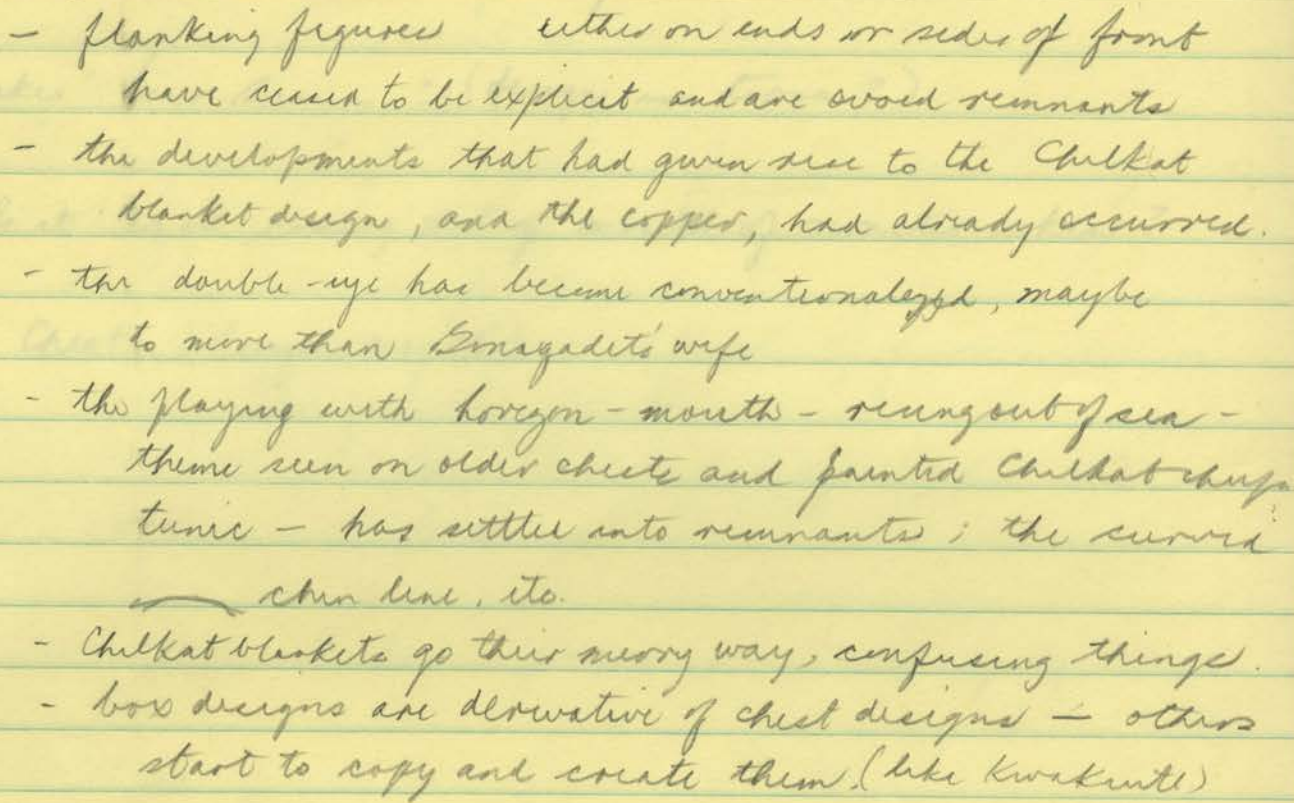 - flanking figures either on ends or sides of front
have ceased to be explicit and are ovoid remnants
- the developments that had given rise to the Chilkat
blanket design, and the copper, had already occurred.
- the double-eye has become conventionalized, maybe
to more than Gonaqadet's wife
- the playing with horizon - mouth - rising out of sea -
theme seen on older chests and painted Chilkat
tunic - has settled into remnants; the curved
chin line, etc.
- Chilkat blankets go their merry way, confusing things.
- box designs are derivative of chest designs - others
start to copy and create them. (like Kwakiutl)